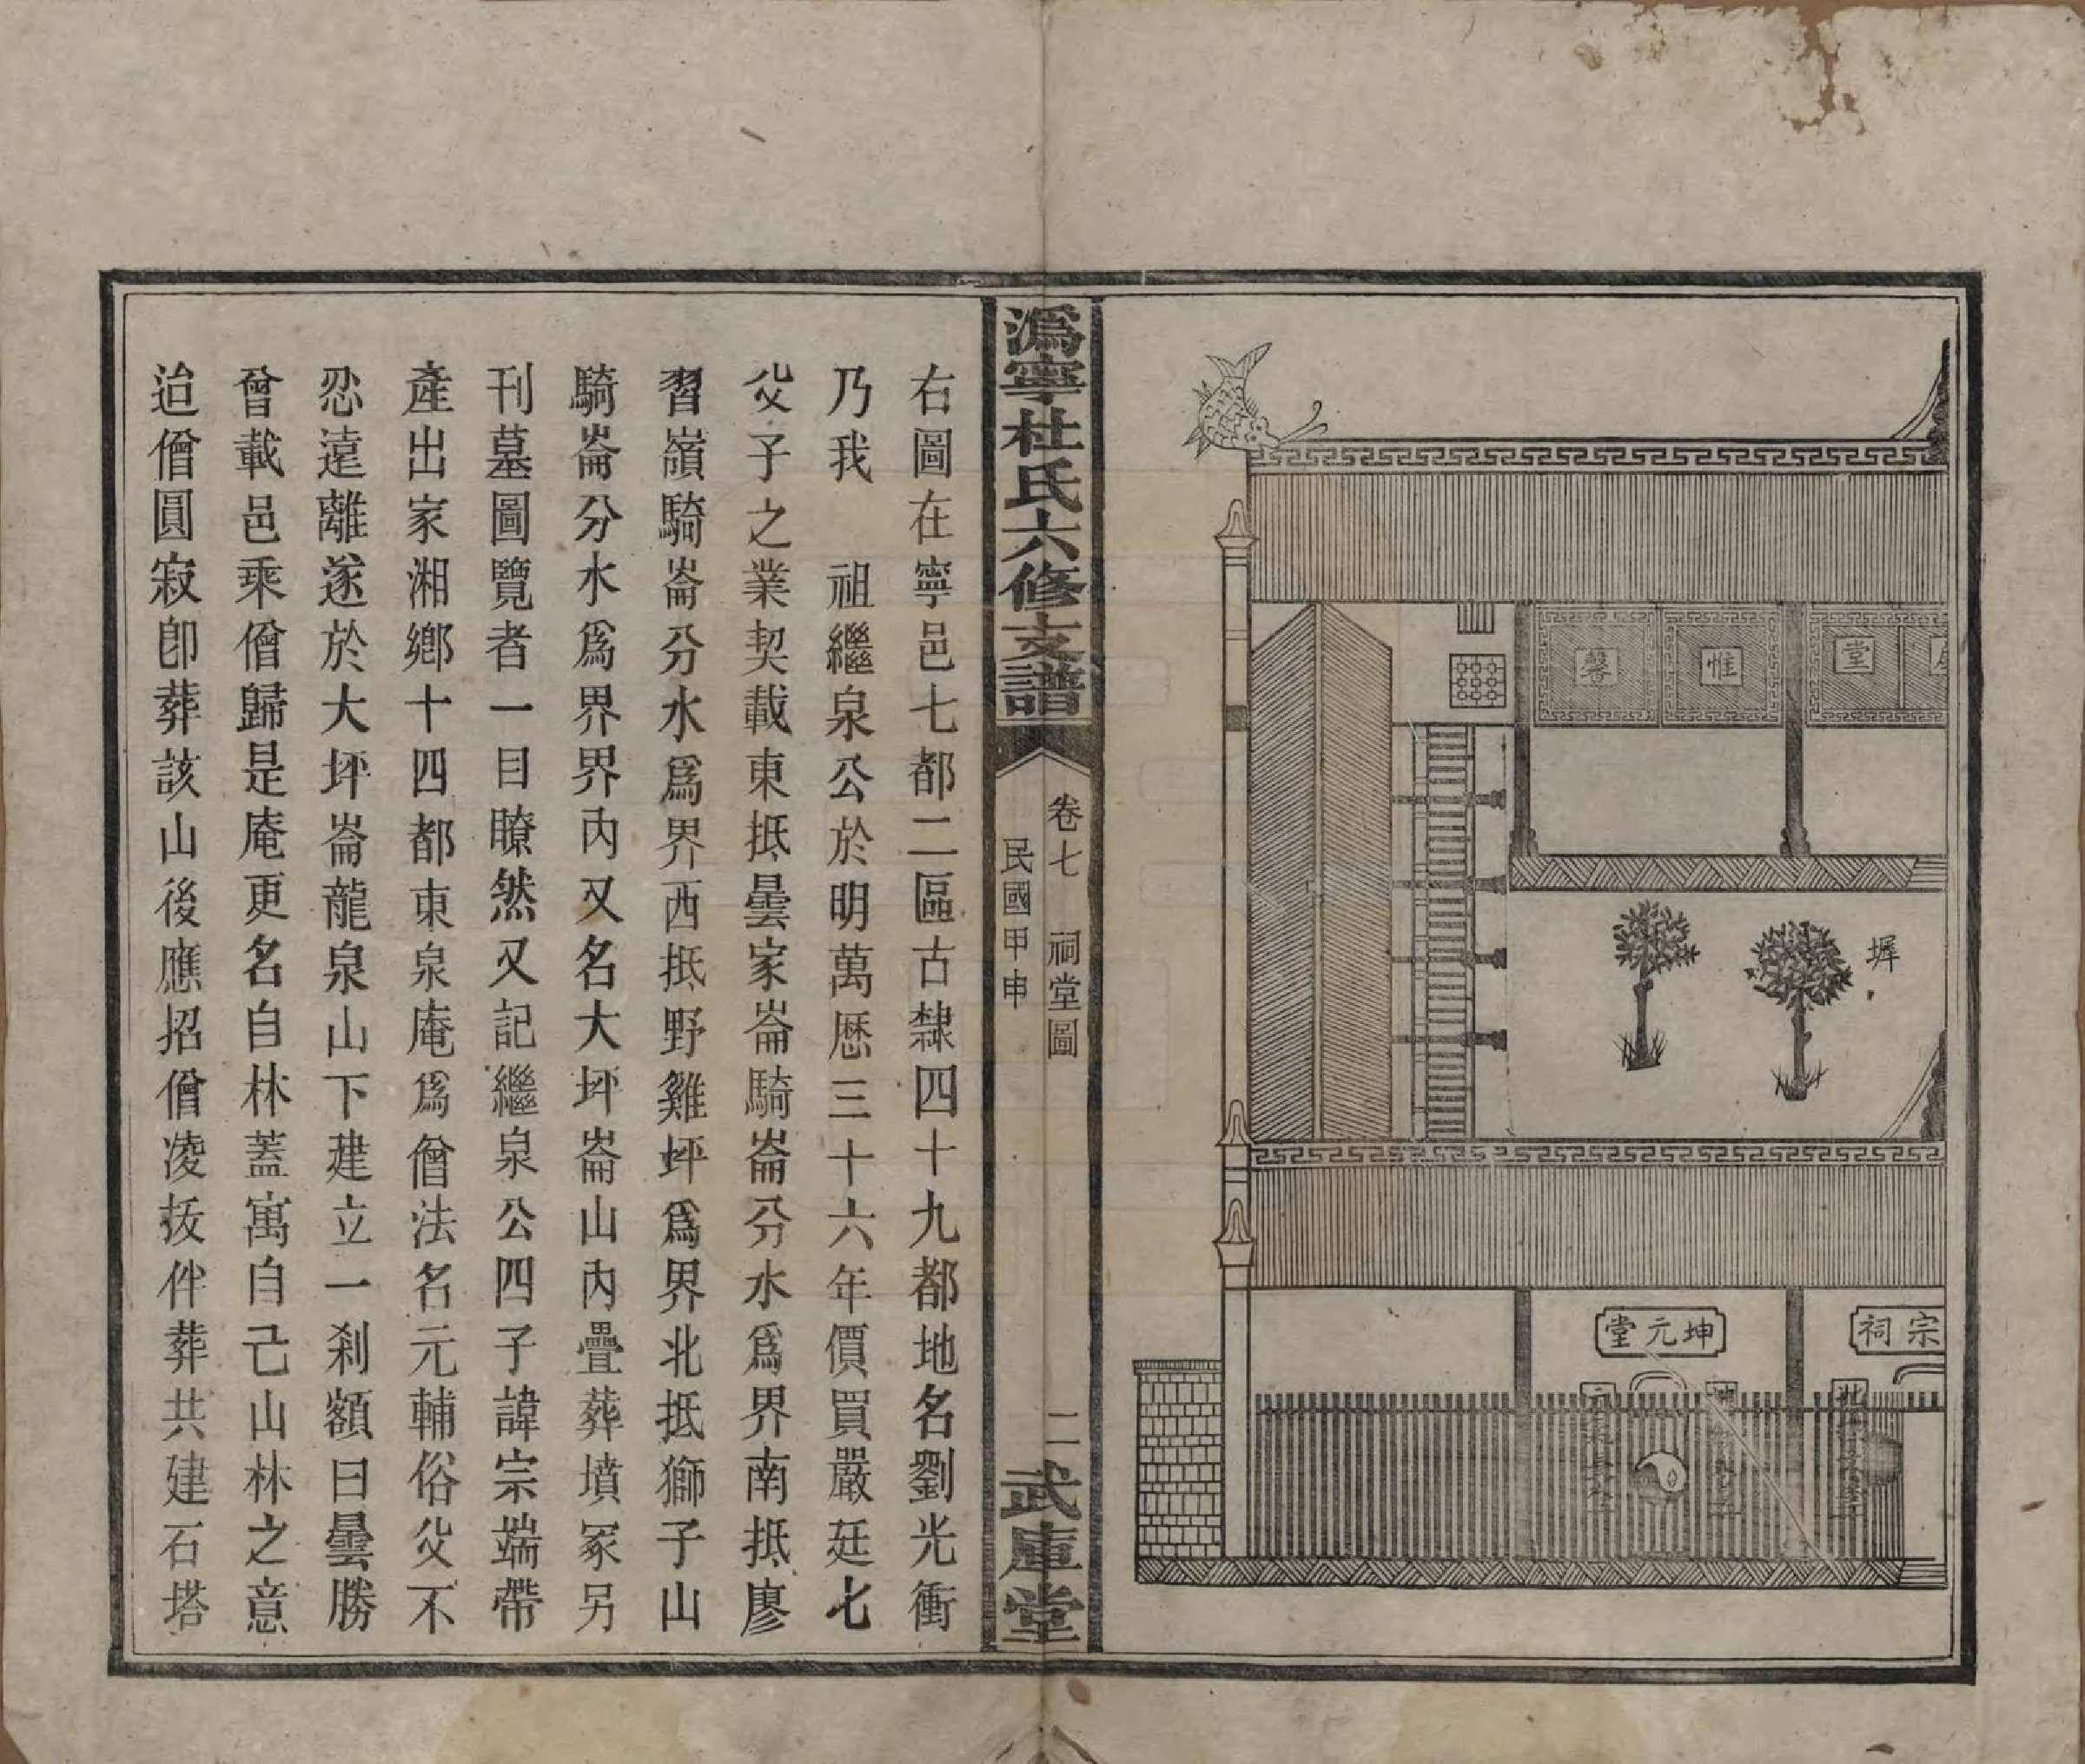 堂
惟
馨
墀
宗祠
坤元堂
溈寧杜氏六修支譜
卷七　祠堂圖
民國甲申
二
武庫堂
右圖在寧邑七都二區古隸四十九都地名劉光衝
乃我　祖繼泉公於明萬厯三十六年價買嚴廷七
父子之業契載東抵曇家崙騎崙分水為界南抵廖
習嶺騎崙分水為界西抵野雞坪為界北抵獅子山
騎崙分水為界界內又名大坪崙山內疊葬墳冢另
刊墓圖覽者一目瞭然又記繼泉公四子諱宗端帶
產出家湘鄉十四都東泉庵為僧法名元輔俗父不
忍遠離遂於大坪崙龍泉山下建立一剎額曰曇勝
曾載邑乘僧歸是庵更名自林蓋寓自己山林之意
迨僧圓寂即葬該山後應招僧凌抜伴葬共建石塔